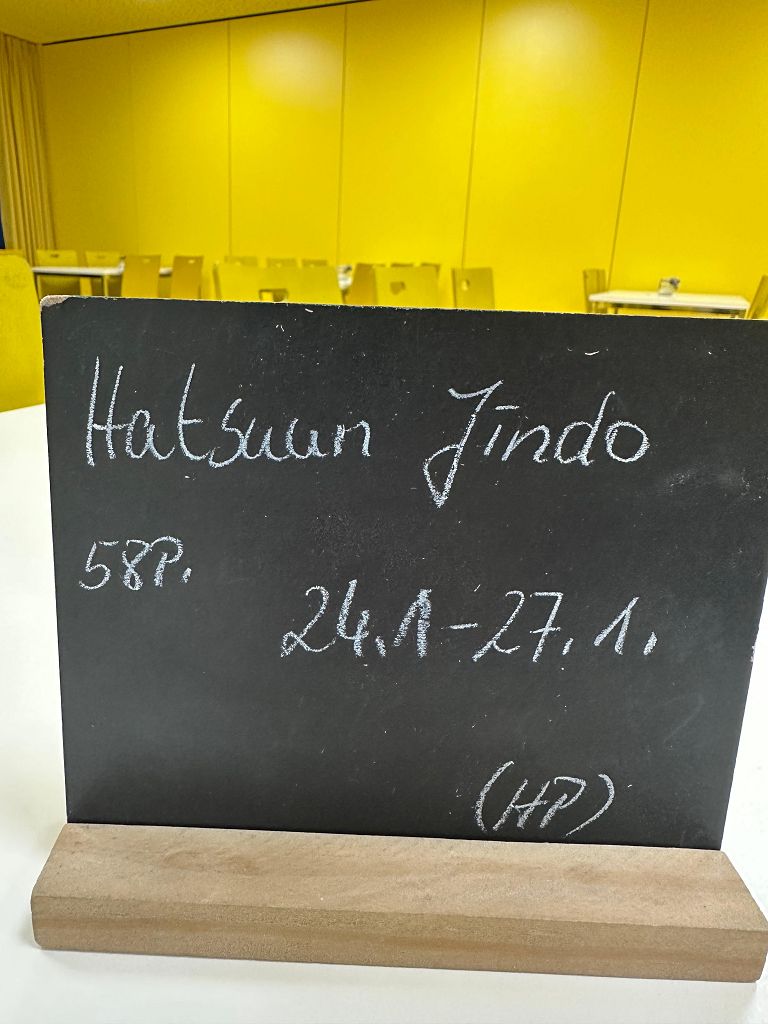 Hatsuun Jindo
58P.
24.1-27.1.
(HP)